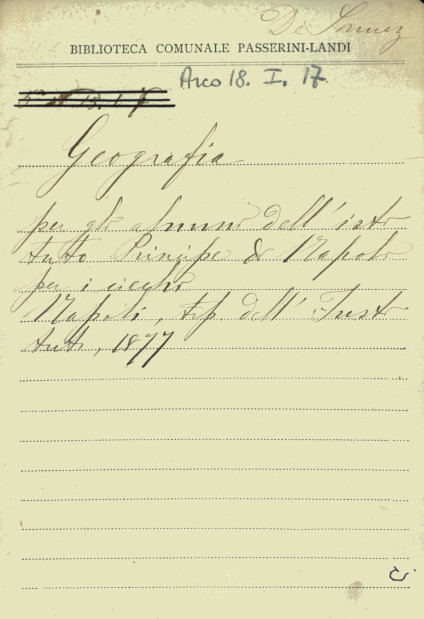 BIBLIOTECA COMUNALE PASSERINI-LANDI
Arco 18. I. 17
Geografia
per gli alunni dell'isti
tuto Principe di Napoli
per i ciechi
Napoli, tip. dell' Isti
tuto, 1877